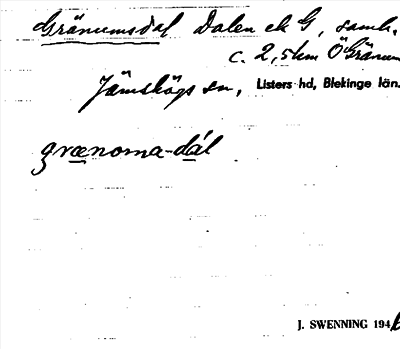 Gränumsdal Dalen ek G, samh.
c. 2,5 km Ö Gränum
Jämshögs sn, Listers hd, Blekinge län.
grænoma-dál
J. SWENNING 1946